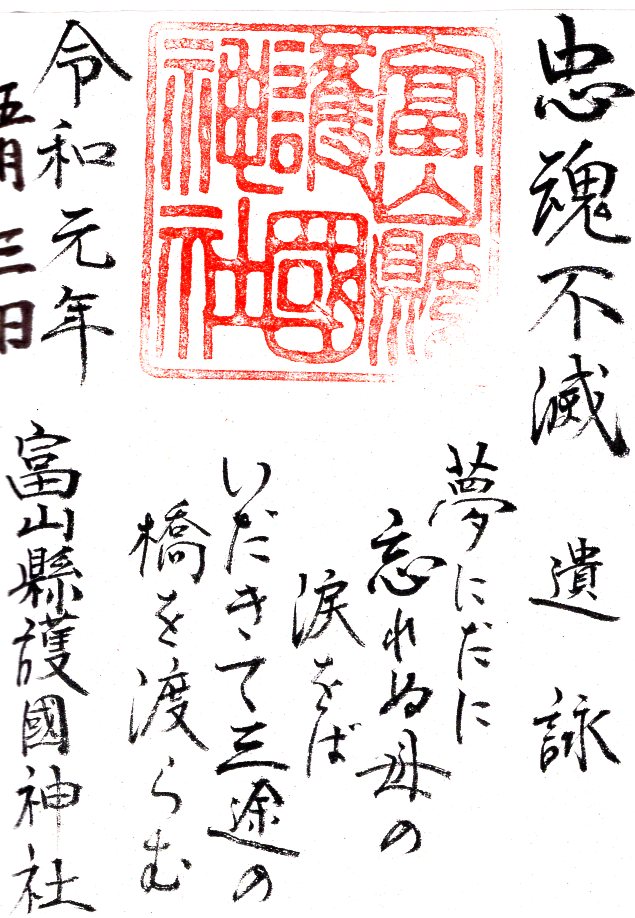 忠魂不滅
遺詠
夢にだに
忘れぬ母の
涙をば
いだきて三途の
橋を渡らむ
富山縣
護國
神社
令和元年
五月三日
富山縣護國神社